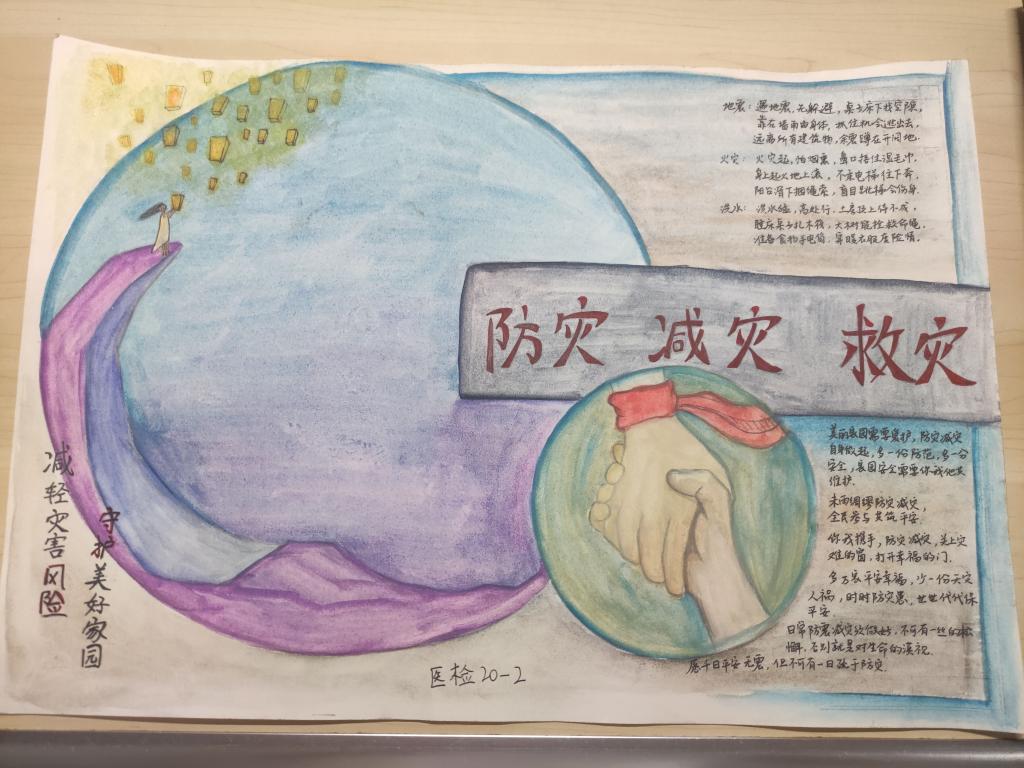 地震：遇地震，先躲避，桌子床下找空隙，
靠在墙角曲身体，抓住机会逃出去，
远离所有建筑物，余震蹲在开阔地。
火灾：火灾起，怕烟熏，鼻口捂住湿毛巾，
身上起火地上滚，不乘电梯往下奔，
阳台滑下捆绳索，盲目跳楼会伤身。
洪水：洪水猛，高处行，土房顶上待不成，
睡床桌子扎木筏，大树能拴救命绳，
准备食物手电筒，穿暖衣服度险情。
防灾 减灾 救灾
美丽家园需要爱护，防灾减灾
自身做起，多一份防范，多一分
安全，家园安全需要你我他共
维护。
未雨绸缪防灾减灾，
全民参与共筑平安。
你我携手，防灾减灾，关上灾
难的窗，打开幸福的门。
多万家平安幸福，少一份天灾
人祸，时时防灾患，世世代代保
平安。
日常防震减灾须做好，不可有一丝的松
懈，否则就是对生命的漠视。
愿千日平安无震，但不可有一日疏于防灾
减轻灾害风险
守护美好家园
医检20-2